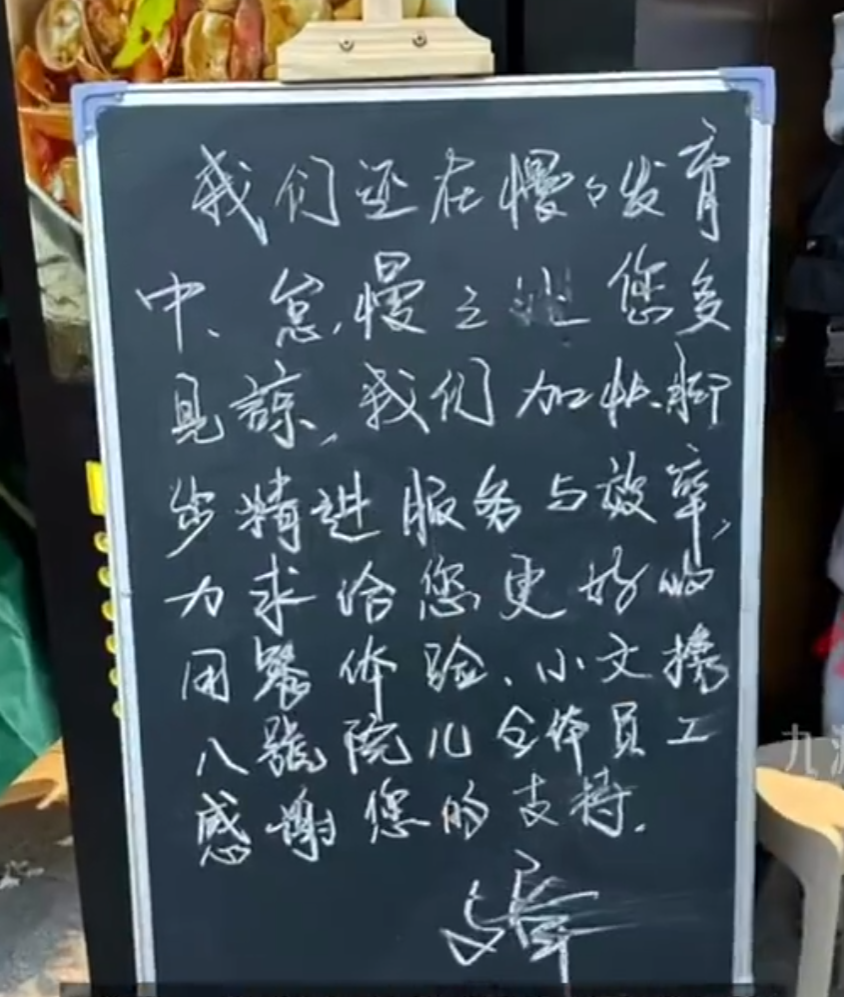 我们还在慢々发育
中、怠慢之处您多
見諒，我们加快腳
步精进服务与效率，
力求给您更好的
用餐体验、小文携
八號院儿全体员工
感謝您的支持.
九